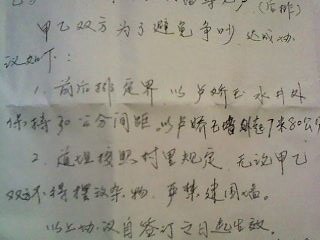 (后排)
甲乙双方为了避免争吵 达成协
议如下：
1. 前后排 定界 以卢娇玉水井外
保持30公分间距。以卢娇玉墙外起7米80公分
2. 道坦按照村里规定 无论甲乙
双方不得摆放杂物，严禁建围墙。
以上协议自签订之日起生效。